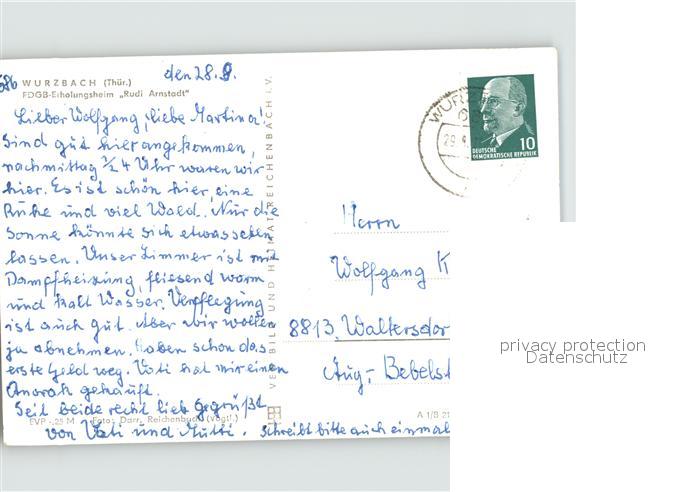 WURZBACH (Thür.)
FDGB-Erholungsheim „Rudi Arnstadt"
den 28.8.
Lieber Wolfgang, liebe Martina!
Sind gut hier angekommen,
nachmittag ½ 4 Uhr waren wir
hier. Es ist schön hier, eine
Ruhe und viel Wald. Nur die
Sonne könnte sich etwas sehen
lassen. Unser Zimmer ist mit
Dampfheizung, fliesend warm
und kalt Wasser. Verpflegung
ist auch gut. Aber wir wollen
ja abnehmen. Haben schon das
erste Geld weg. Vati hat mir einen
Anorak gekauft.
Seit beide recht lieb gegrüßt
von Vati und Mutti. Schreibt bitte auch einmal
EVP -,25 M Foto: Darr, Reichenbach (Vogtl.)
VERLAG BILD UND HEIMAT REICHENBACH i. V.
A 1/B 21
WURZ
29.
10
DEUTSCHE
DEMOKRATISCHE REPUBLIK
Herrn
Wolfgang K
8813, Waltersdor
Aug.-Bebelst
privacy protection
Datenschutz